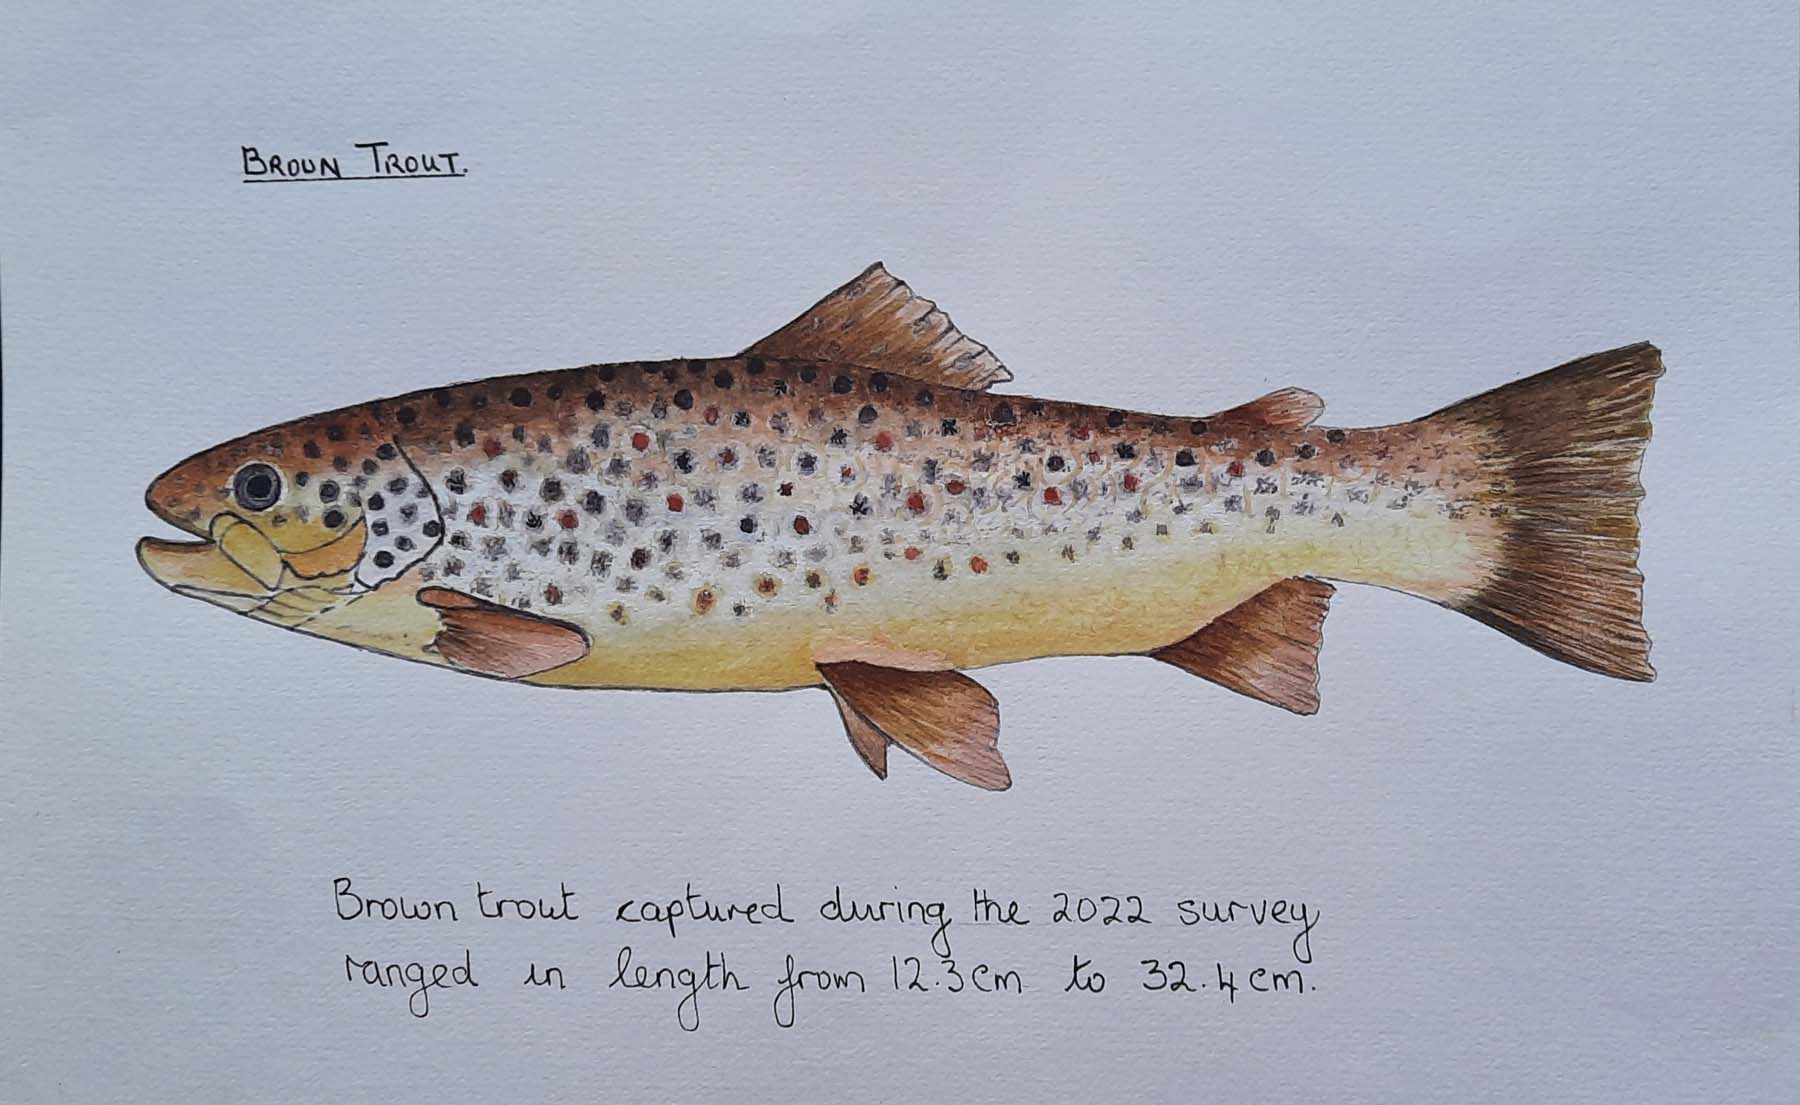 BROWN TROUT.
Brown trout captured during the 2022 survey
ranged in length from 12.3cm to 32.4cm.